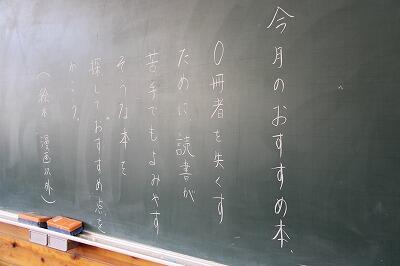 今月のおすすめ本、
0冊者を失くす
ために、読書が
苦手でもよみやす
そうな本を
探しておすすめ点を
かこう。
(絵本 漫画以外)